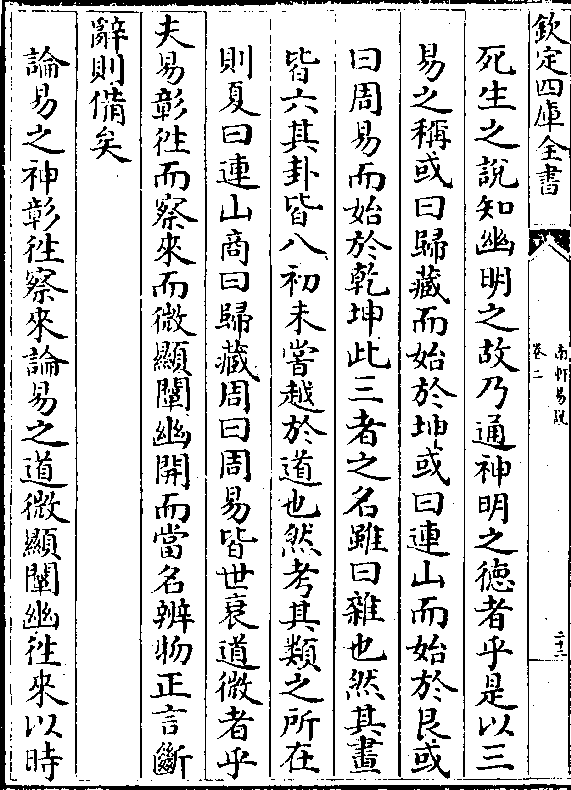 欽定四庫全書
南軒易說
卷二
二十二
死生之說知幽明之故乃通神明之德者乎是以三
易之稱或曰歸藏而始於坤或曰連山而始於艮或
曰周易而始於乾坤此三者之名雖曰雜也然其畫
皆六其卦皆八初未嘗越於道也然考其類之所在
則夏曰連山商曰歸藏周曰周易皆世衰道微者乎
夫易彰徃而察來而微顯闡幽開而當名辨物正言斷
辭則備矣
論易之神彰徃察來論易之道微顯闡幽徃來以時